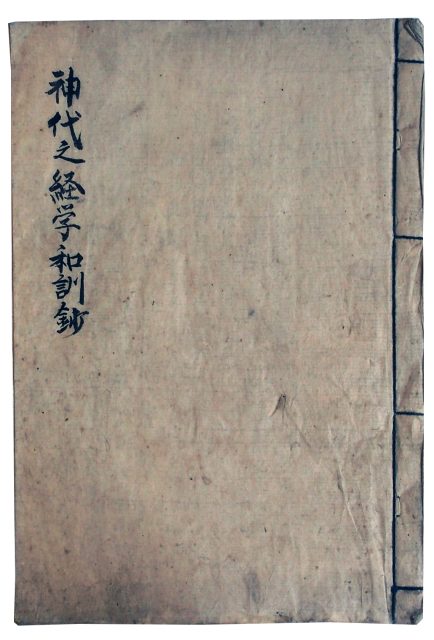 神代之経学和訓鈔